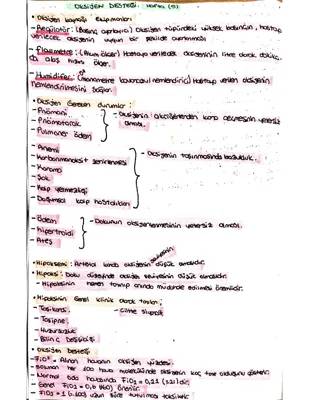 OKSİJEN DESTEĞİ
• Oksijen kaynağı Ekipmanları
- Regülatör: (Basınç ayarlayıcı) Oksijen tüpündeki yüksek basıncın, hastaya
verilecek oksijenin uygun bir şekilde ayarlanması
- Flowmetre: (Akım ölçer) Hastaya verilecek oksijenin litre olarak dakika
akış hızını ölçer.
- Humidifier: nemlendirici) Hastaya verilen oksijenin
nemlendirilmesini sağlar.
• Oksijen Gereken durumlar:
- Pnömoni
- Pnömotoraks
- Pulmoner ödem
- Oksijenin akciğerlerden kana geçişinin yetersiz
olması.
- Anemi
- Karbonmonoksit zehirlenmesi
- Kanama
- Şok
- Kalp yetmezliği
- Doğumsal kalp hastalıkları
- Oksijenin taşınmasında bozukluk.
- Ödem
- Hipertroidi
- Ateş
- Dokunun oksijenlenmesinin yetersiz olması.
• Hipoksemi: Arterial kanda oksijen seviyesinin düşük olmasıdır.
• Hipoksi: Doku düzeyinde oksijen seviyesinin düşük olmasıdır.
- Hipoksinin hemen tanınıp anında müdahale edilmesi önemlidir.
• Hipoksinin Genel klinik olarak tanıları;
- Taşikardi
- Taşipne
- Huzursuzluk
- Bilinç Değişikliği
• Oksijen Desteği
- FiO² = Alınan havanın oksijen yüzdesi.
- Solunan her 100 hava molekülünde oksijenin kaç tane olduğunu gösterir.
- Normal oda havasında FiO₂ = 0,21 (%21) dir.
- Genel FiO₂ = 0,6 (%60) önerilir.
- FiO₂ = 1 (%100) uzun süre tutulması toksiktir.